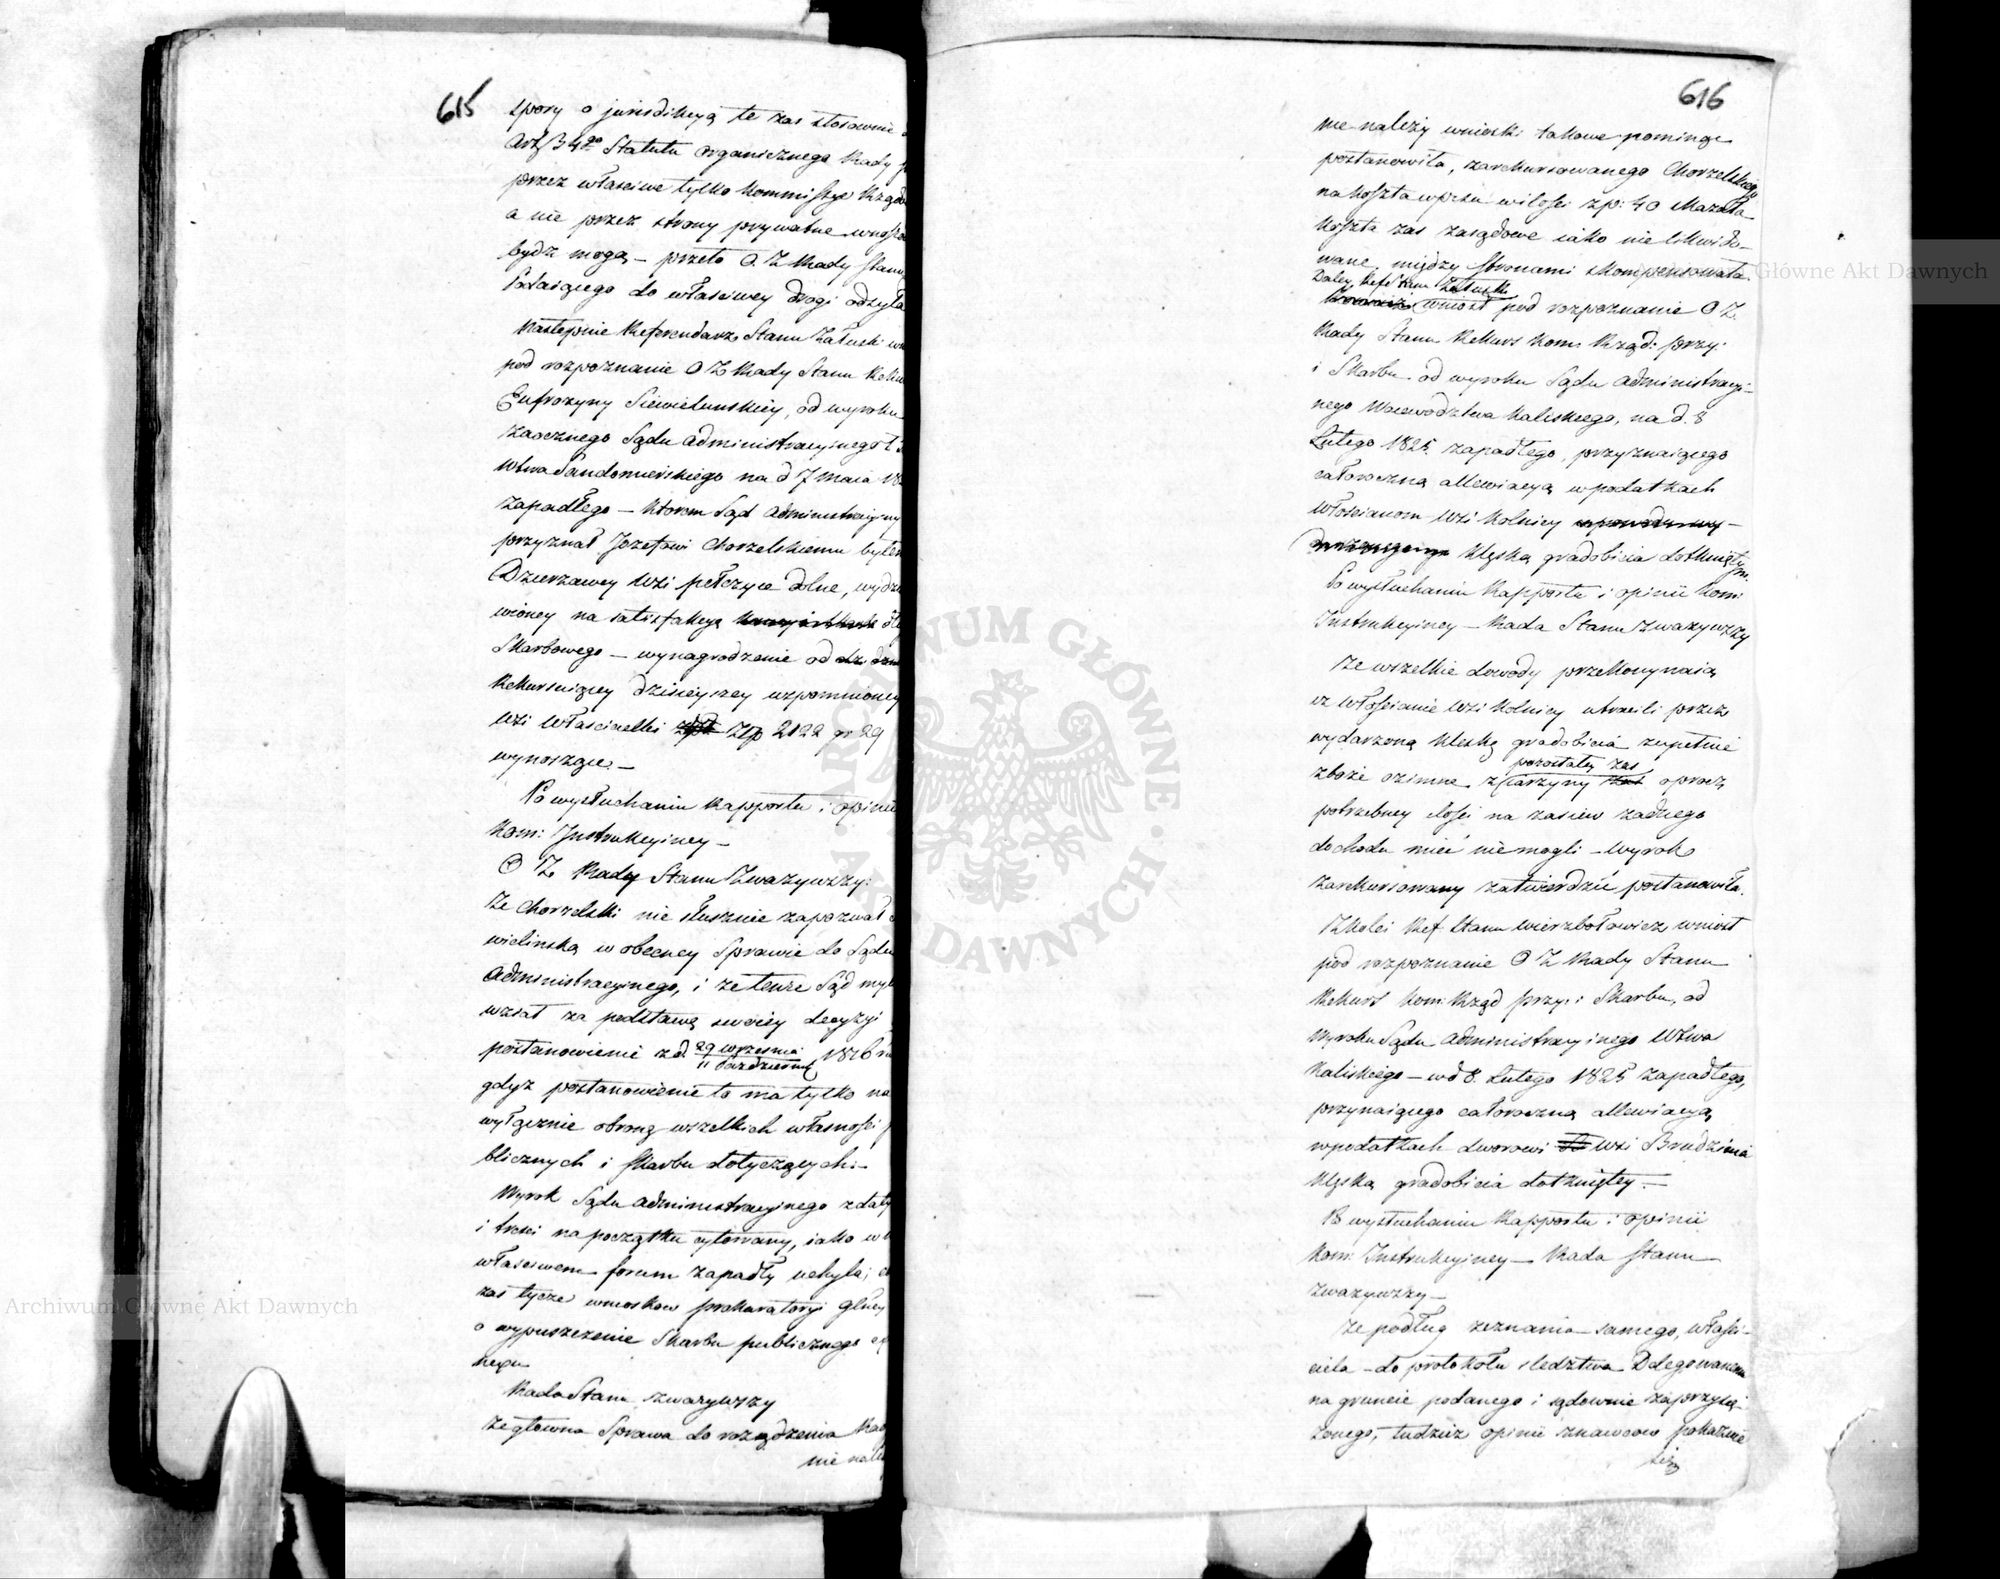 615
spory o jurisdikcyą te zas stosownie
Art 34go Statutu organicznego Rady
przez własciwe tylko Kommissye Rządo
a nie przez strony prywatne wnoszo
bydz mogą – przeto O Z Rady Stanu
Załaiącego do własciwey drogi odsyła
Następnie Referendarz Stanu Załuski
pod rozpoznanie O Z Rady Stanu Reku
Eufrozyny Siewielunskiey, od wyroku
zaocznego Sądu administracyinego
Wtwa Sandomierskiego na d 7 maia 18
zapadłego – ktorem Sąd administracyiny
przyznał Jozefowi Chorzelskiemu byłem
Dzierzawcy wsi pełczyce dolne, wydzie
wioney na satisfakcyą
Skarbowego – wynagrodzenie od
Rekursuiącey dzisieyszey wzpomnioney
wsi własciicielki Złp 2122 gr 29
wynoszące. –
Po wysłuchaniu Rapportu i opinii
Kom: Instrukcyiney –
O Z Rady Stanu Zwazywszy:
Ze Chorzelski nie słusznie zapozwał
wielinską w obecney Sprawie do Sądu
administracyinego, i ze tenze Sąd myl
wziął za podstawę swoiey decyzyi
postanowienie z d 29 wrzesnia / 11 Pazdziernik 1816
gdyz postanowienie to ma tylko na
wyłącznie obronę wszelkich własnosci
blicznych i Skarbu dotyczących. –
Wyrok Sądu administracyinego z daty
i tresci na początku cytowany, iako w
własciwem forum zapadły uchyla;
zas tycze wnioskow prokuratoryi główy
o wypuszczenie Skarbu publicznego
nexu
Rada Stanu zwazywszy
Ze główna Sprawa do roządzenia Rady
nie nale
616
nie należy wnioski takowe pominąc
postanowiła, zarekursowanego Chorzelskiego
na koszta wpisu wilosci zp: 40 skazała
koszta zas zasądowe iako nie likwido-
wane, między stronami skompensowała
Daley Refr Stanu Załuski
wniosł pod rozpoznanie O Z.
Rady Stanu Rekurs Kom: Rząd: przy:
i Skarbu od wyroku Sądu administracyi-
nego Woiewodztwa Kaliskiego, na d. 8
Lutego 1825 zapadłego, przyznaiącego
całoroczną allewiacyą w podatkach
włoscianom wsi Kolnicy
klęską gradobicia dotkniętym.
Po wysłuchaniu Rapportu i opinii Kom:
Instrukcyiney – Rada Stanu Zwazywszy
Ze wszelkie dowody przekonywaią
iz włoscianie wsi Kolnicy utracili przez
wydarzoną klęskę gradobicia zupełnie
pozostałey zas
zboże ozimne z iarzyny oprocz
potrzebney ilosci na zasiew zadnego
dochodu miec niemogli – Wyrok
zarekursowany zatwierdzić postanowiła.
Z kolei Ref Stanu Wierzbołowicz wniosł
pod rozpoznanie O Z Rady Stanu
Rekurs Kom: Rząd przy: i Skarbu, od
Wyroku Sądu administracyinego Wtwa
Kaliskiego – w d 8. Lutego 1825 zapadłego,
przynaiącego całoroczną allewiacyą
w podatkach dworowi wsi Brudzinia
klęską gradobicia dotkniętey. –
Po wysłuchaniu Rapportu i opinii
Kom: Instrukcyiney – Rada Stanu
zwazywszy –
Ze podług zeznania samego, własci-
ciela – do protokołu sledztwa Delegowanemu
na gruncie podanego i sądownie zaprzysię-
zonego, tudziez opinii znawcow pokazuie
się
Archiwum Główne Akt Dawnych
Archiwum Główne Akt Dawnych
ARCHIWUM GŁÓWNE AKT DAWNYCH